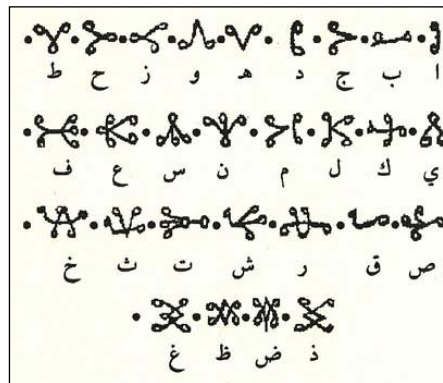 ا ب ج د ه و ز ح ط
ي ك ل م ن س ع ف
ص ق ر ش ت ث خ
ذ ض ظ غ